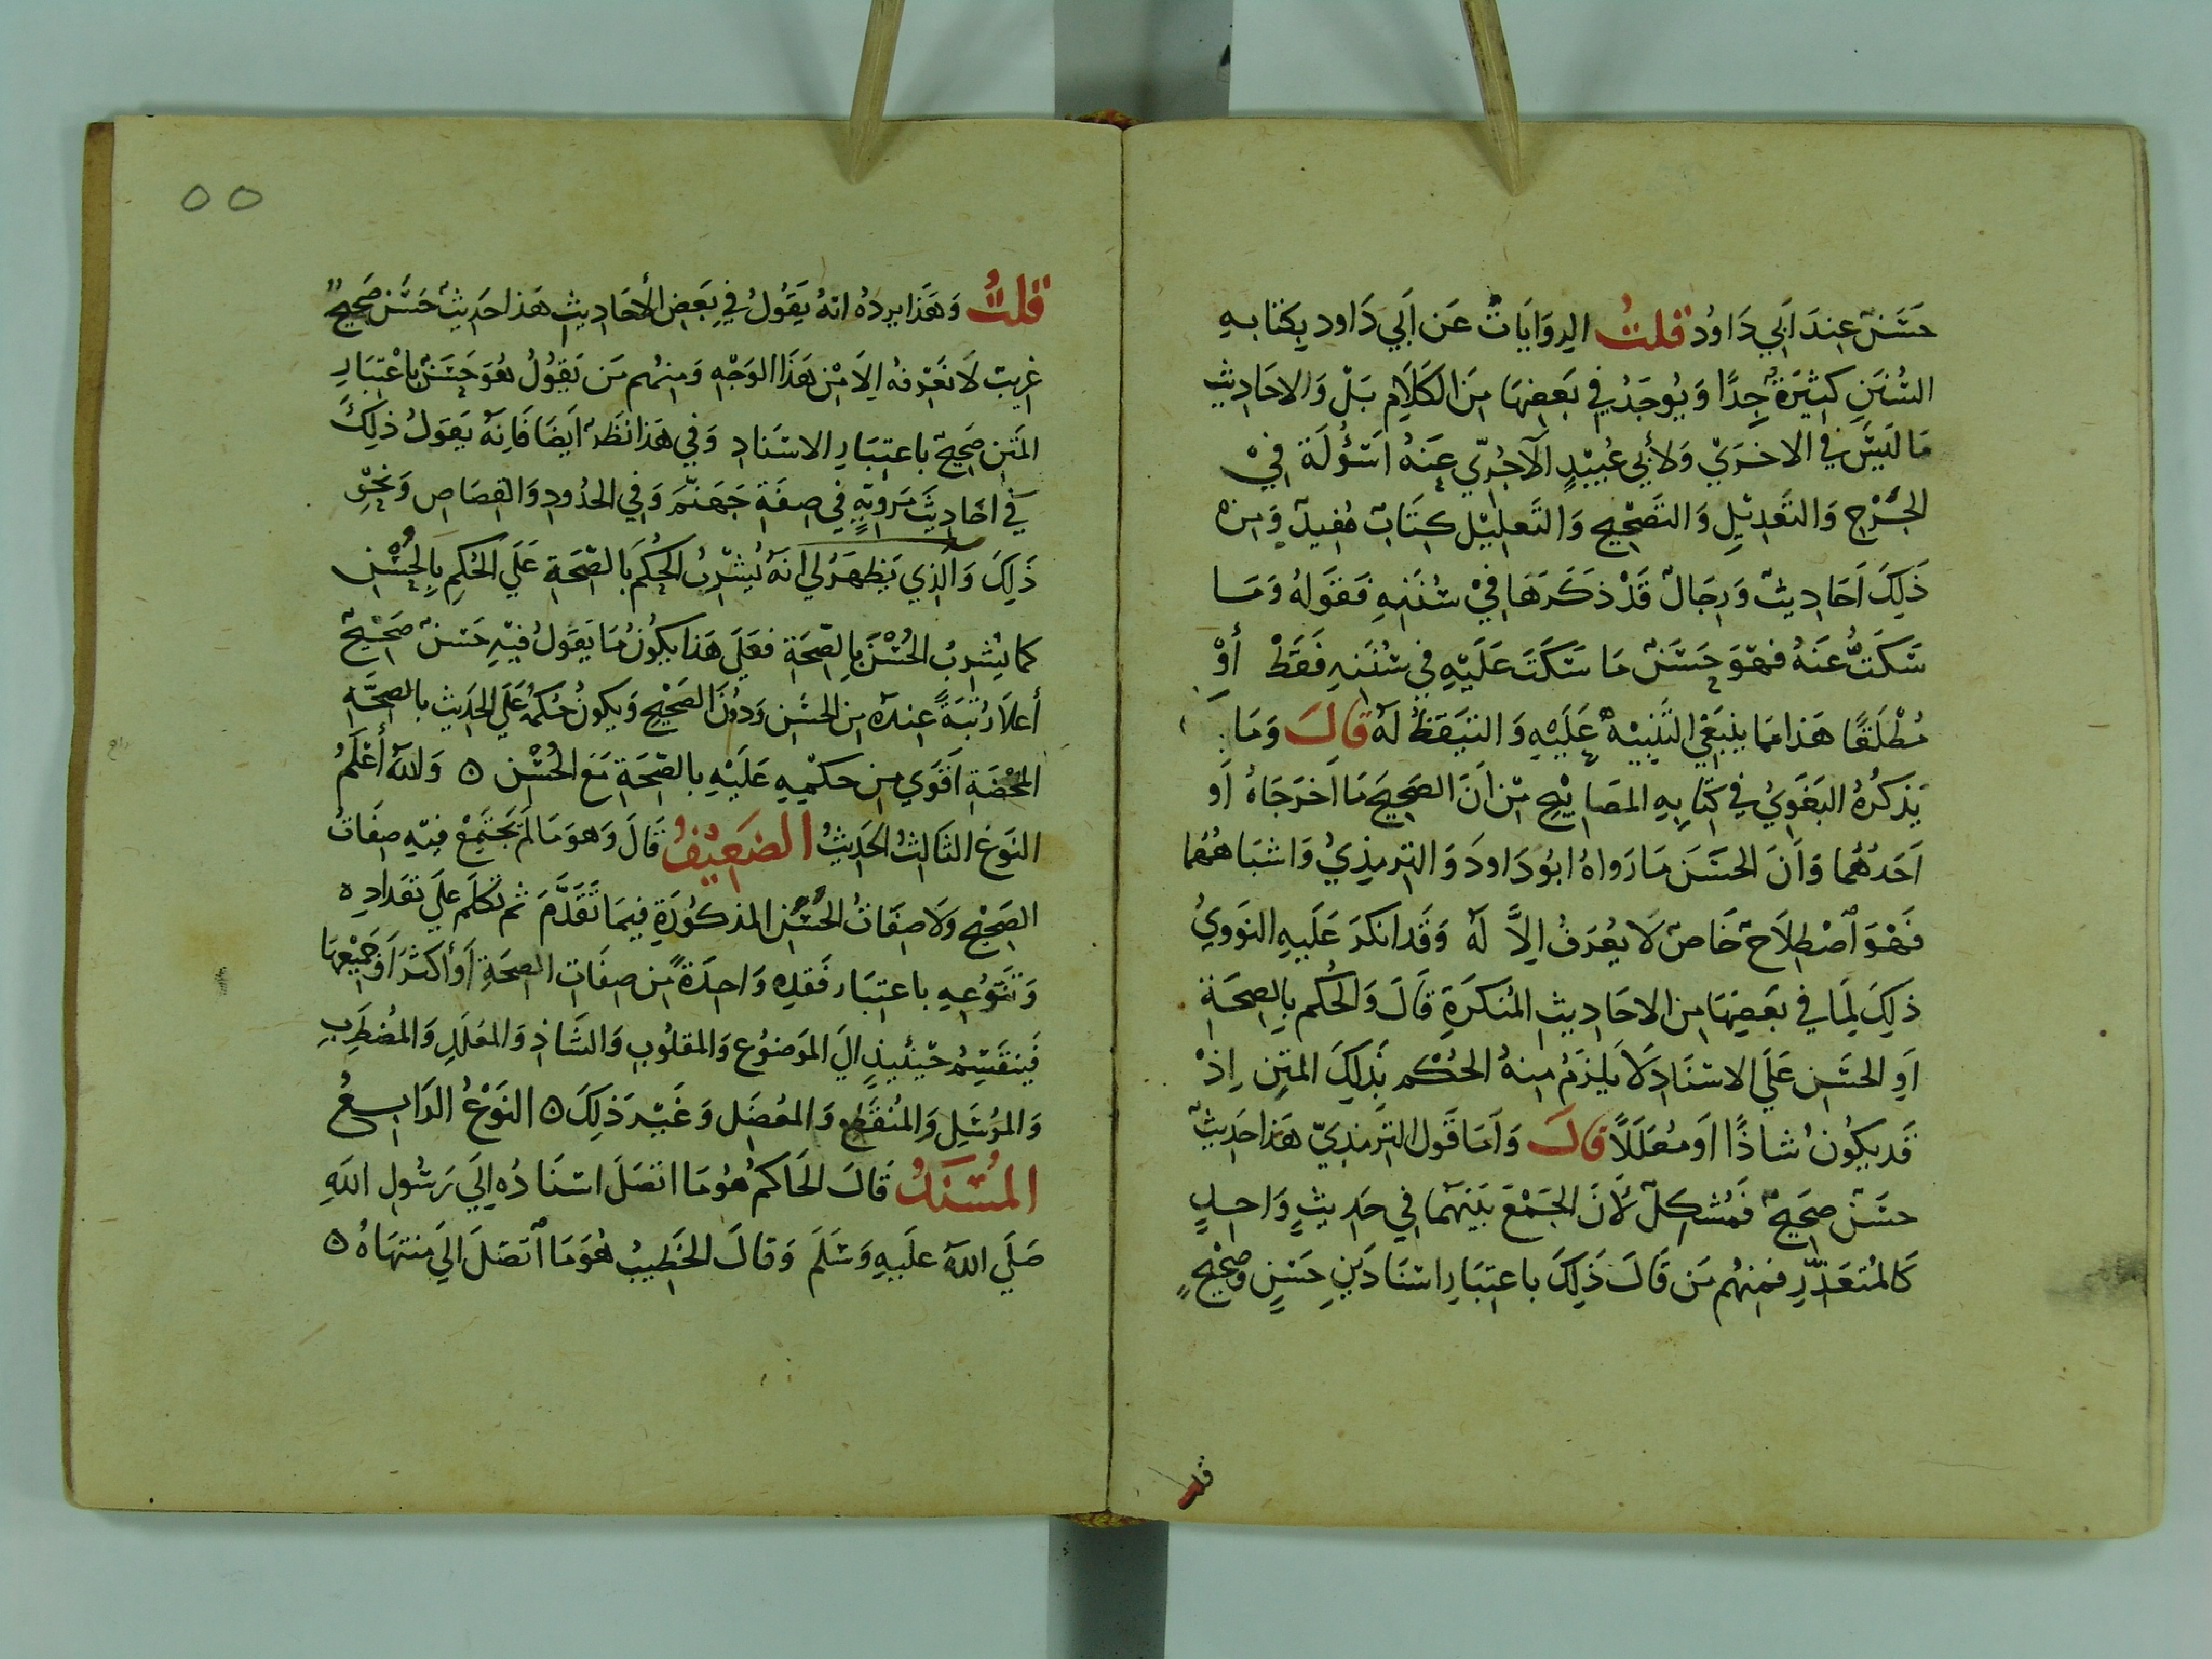 حَسَنٌ عِندَ اَبِي دَاوُد قلتُ الروَايَاتُ عَن اَبي دَاود بِكتابهِ
السُّنَنِ كثِيَرةٌ جِدًا وَيُوجَدُ في بَعضِهَا مِنَ الكَلاَمِ بَلْ وَالاحَادِيثِ
مَا لَيسَ في الاخرَيِ وَلأبي عُبَيْدٍ الآجُرّي عَنهُ اَسْؤُلَة فِيْ
الجَرْحِ وَالتَّعدِيْلِ وَالتَصْحِيحِ وَالتَعلِيْل كِتَابٌ مُفيدٌ وَمِنْ
ذَلِكَ اَحَادِيثٌ وَرِجَالٌ قَدْ ذكَرَهَا فيْ سُنَنِهِ فَقَولهُ وَمَا
سَكَتُّ عَنَهُ فهوَ حَسَنٌ مَا سَكَتَ عَلَيْهِ في سُنَنهِ فَقَطْ أوْ
مُطْلَقًا هَذا مما يَنبَغِي التَنبِيْهُ عَلَيْهِ وَالتيَقظُ لَهُ قالَ وَمَا
يَذكُرُهُ البَغَوِيُّ في كتَابِهِ المصَابيْحِ مِنْ اَنَ الصَحِيحَ مَا اَخرَجَاهُ اَو
اَحَدُهُما وَاَنَ الحَسَنَ مَا رَواهُ ابُو دَاودَ وَالترمِذيُ وَاشبَاهُهُما
فَهْوَ اصْطِلَاحٌ خَاصٌ لَا يُعْرَفُ الِاَّ لَهُ وَقَد انكَرَ عَلَيهِ النَووِيُ
ذَلِكَ لِمَا في بَعَضِهَا مِن الاحَادِيثِ المُنكَرَةِ قَالَ وَالحُكم بِالصِحَةِ
اَوِ الحسَنِ عَلَي الاسْنَادِ لَا يَلزَمُ مِنهُ الحُكْم بذَلِكَ المتنِ اِذْ
قَد يكُونُ شاذًا اَو مُعَلَلًا قالَ وَاَمَا قَول الترمذِيّ هَذا حَدِيثٌ
حسَنٌ صحِيحٌ فَمُشكِلٌ لأَنَ الجَمْعَ بَينَهمَا في حَدِيثٍ وَاحِدٍ
كَالمُتعَذِّرِ فمِنهُم مَن قَالَ ذَلِكَ باعتبَارِ اسْنَادَينِ حَسَنٍ وصَحِيحٍ
قلتُ وَهَذَا يردهُ انهُ يَقُولُ في بَعضِ الأحَادِيثِ هَذا حَدِيثٌ حَسَنٌ صَحِيحٌ
غريبٌ لَا نَعْرفهُ الِا مِنْ هَذَا الوَجْهِ وَمِنهُم مَن يَقُولُ هُوَ حَسَنٌ باعْتِبَارِ
المَتنِ صَحِيحٌ باعتِبَارِ الاسْنَادِ وَفي هَذا نظَرٌ اَيضًا فَاِنهُ يَقولُ ذلِكَ
في اَحَادِيثَ مَروِيّةٍ في صِفَةِ جَهَنَّمَ وَفي الحدُودِ وَالقِصَاصِ وَنَحْوِ
ذَلِكَ وَالذِي يَظهَرُ لي انهُ يُشْرِبُ الحُكمَ بالصِّحَةِ عَلَي الحُكمِ بِالحُسْنِ
كما يُشرِبُ الحُسْنَ بالِصّحَةِ فعَلَي هَذا يكُونُ مَا يَقولُ فيْهِ حَسَنٌ صَحْيحٌ
أعلَا رُتبَةً عِندهُ مِن الحسَنِ وَدُونَ الصَحْيح وَيكونُ حُكمُهُ عَلي الحَدِيثِ بالصِحَّةِ
المحْضَةِ اَقوَي مِن حكمِهِ عَلَيْهِ بالصِّحَةِ مَعَ الحُسْنِ ٥ وَاللهُ أعْلَمُ
النَوعُ الثَالثُ الحَدِيْثُ الضَعِيْفُ قَالَ وَهوَ مَا لَمْ يجتَمِعْ فِيْهِ صِفَاتُ
الصَحِيْحِ وَلَا صِفَاتُ الحُسْنِ المذكُورَةِ فِيمَا تَقَدَّمَ ثُم تكَلَّمَ عَلي تَعَدَادِهِ
وَتَنَوُعِهِ باعتِبَارِ فَقدِهِ وَاحِدَةً مِن صِفَاتِ الصِحَةِ اَو أكثَرَ اَو جَمِيْعِهَا
فَينقَسِمُ حِيْنَئِيذٍ اليَ الموَضُوعِ وَالمَقلُوبِ وَالشَاذِ وَالمُعَلَلِ وَالمُضْطَرِبِ
وَالمُرسَلِ وَالمُنقَطِعِ وَالمُعضَلِ وَغَيْرِ ذَلِكَ ٥ النَوْعُ الرَابِعُ
المُسْنَدُ قَالَ الحَاكمُ هُوُ مَا اتصَلَ اسْنَادُهُ اِلَي رَسُولِ اللهِ
صَلَي اللهُ عَلَيهِ وَسَلَمَ وَقالَ الخَطِيبُ هُوَ مَا اتَصَلَ اليَ مُنتهَاهُ ٥
٥٥